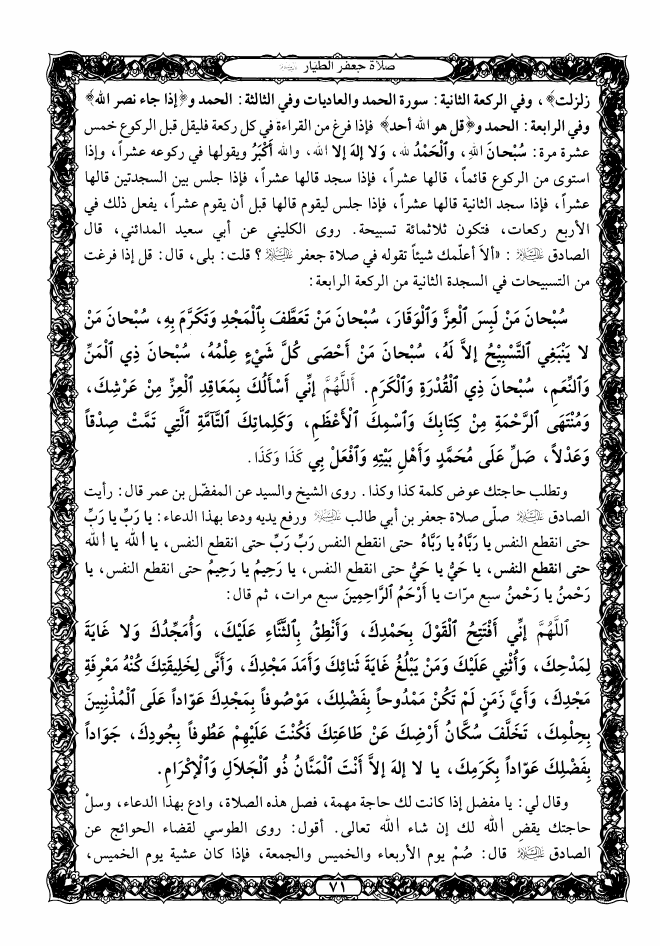 صلاة جعفر الطيار
زلزلت﴾، وفي الركعة الثانية: سورة الحمد والعاديات وفي الثالثة: الحمد و﴿إذا جاء نصر الله﴾
وفي الرابعة: الحمد و﴿قل هو الله أحد﴾ فإذا فرغ من القراءة في كل ركعة فليقل قبل الركوع خمس
عشرة مرة: سُبْحانَ اللهِ، وٱلْحَمْدُ لله، وَلا إلهَ إلا الله، والله أَكْبَرُ ويقولها في ركوعه عشراً، وإذا
استوى من الركوع قائماً، قالها عشراً، فإذا سجد قالها عشراً، فإذا جلس بين السجدتين قالها
عشراً، فإذا سجد الثانية قالها عشراً، فإذا جلس ليقوم قالها قبل أن يقوم عشراً، يفعل ذلك في
الأربع ركعات، فتكون ثلاثمائة تسبيحة. روى الكليني عن أبي سعيد المدائني، قال
الصادق عليه السلام: «ألاَ أعلّمك شيئاً تقوله في صلاة جعفر عليه السلام؟ قلت: بلى، قال: قل إذا فرغت
من التسبيحات في السجدة الثانية من الركعة الرابعة:
سُبْحانَ مَنْ لَبِسَ ٱلْعِزَّ وَٱلْوَقَارَ، سُبْحانَ مَنْ تَعَطَّفَ بِٱلْمَجْدِ وَتَكَرَّمَ بِهِ، سُبْحانَ مَنْ
لا يَنْبَغِي ٱلتَّسْبِيْحُ إلاَّ لَهُ، سُبْحانَ مَنْ أَحْصَى كُلَّ شَيْءٍ عِلْمُهُ، سُبْحانَ ذِي ٱلْمَنِّ
وَٱلنِّعَمِ، سُبْحانَ ذِي ٱلْقُدْرَةِ وَٱلْكَرَمِ. أَللَّهُمَّ إنِّي أَسْأَلُكَ بِمَعَاقِدِ ٱلْعِزِّ مِنْ عَرْشِكَ،
وَمُنْتَهَى ٱلرَّحْمَةِ مِنْ كِتَابِكَ وَٱسْمِكَ ٱلْأَعْظَمِ، وَكَلِماتِكَ ٱلتَّآمَّةِ ٱلَّتِي تَمَّتْ صِدْقاً
وَعَدْلاً، صَلِّ عَلَى مُحَمَّدٍ وَأَهْلِ بَيْتِهِ وَٱفْعَلْ بِي كَذَا وَكَذَا.
وتطلب حاجتك عوض كلمة كذا وكذا. روى الشيخ والسيد عن المفضّل بن عمر قال: رأيت
الصادق عليه السلام صلّى صلاة جعفر بن أبي طالب عليه السلام ورفع يديه ودعا بهذا الدعاء: يا رَبِّ يا رَبِّ
حتى انقطع النفس يا رَبَّاهُ يا رَبَّاهُ حتى انقطع النفس رَبِّ رَبِّ حتى انقطع النفس، يا ألله يا ألله
حتى انقطع النفس، يا حَيُّ يا حَيُّ حتى انقطع النفس، يا رَحِيمُ يا رَحِيمُ حتى انقطع النفس، يا
رَحْمنُ يا رَحْمنُ سبع مرّات يا أَرْحَمُ ٱلرَّاحِمِينَ سبع مرات، ثم قال:
أَللَّهُمَّ إنِّي أَفْتَتِحُ ٱلْقَوْلَ بِحَمْدِكَ، وَأَنْطِقُ بِٱلثَّنَّاءِ عَلَيْكَ، وَأُمَجِّدُكَ وَلا غَايَةَ
لِمَدْحِكَ، وَأُثْنِي عَلَيْكَ وَمَنْ يَبْلُغُ غَايَةَ ثَنائِكَ وَأَمَدَ مَجْدِكَ، وَأَنَّى لِخَلِيقَتِكَ كُنْهُ مَعْرِفَةِ
مَجْدِكَ، وَأَيَّ زَمَنٍ لَمْ تَكُنْ مَمْدُوحاً بِفَضْلِكَ، مَوْصُوفاً بِمَجْدِكَ عَوَّاداً عَلَى ٱلْمُذْنِبِينَ
بِحِلْمِكَ، تَخَلَّفَ سُكَّانُ أَرْضِكَ عَنْ طَاعَتِكَ فَكُنْتَ عَلَيْهِمْ عَطُوفاً بِجُودِكَ، جَوَاداً
بِفَضْلِكَ عَوَّاداً بِكَرَمِكَ، يا لا إلهَ إلاَّ أَنْتَ ٱلْمَنَّانُ ذُو ٱلْجَلَالِ وَٱلْإكْرَامِ.
وقال لي: يا مفضل إذا كانت لك حاجة مهمة، فصل هذه الصلاة، وادع بهذا الدعاء، وسلْ
حاجتك يقضِ ألله لك إن شاء ألله تعالى. أقول: روى الطوسي لقضاء الحوائج عن
الصادق عليه السلام قال: صُمْ يوم الأربعاء والخميس والجمعة، فإذا كان عشية يوم الخميس،
٧١